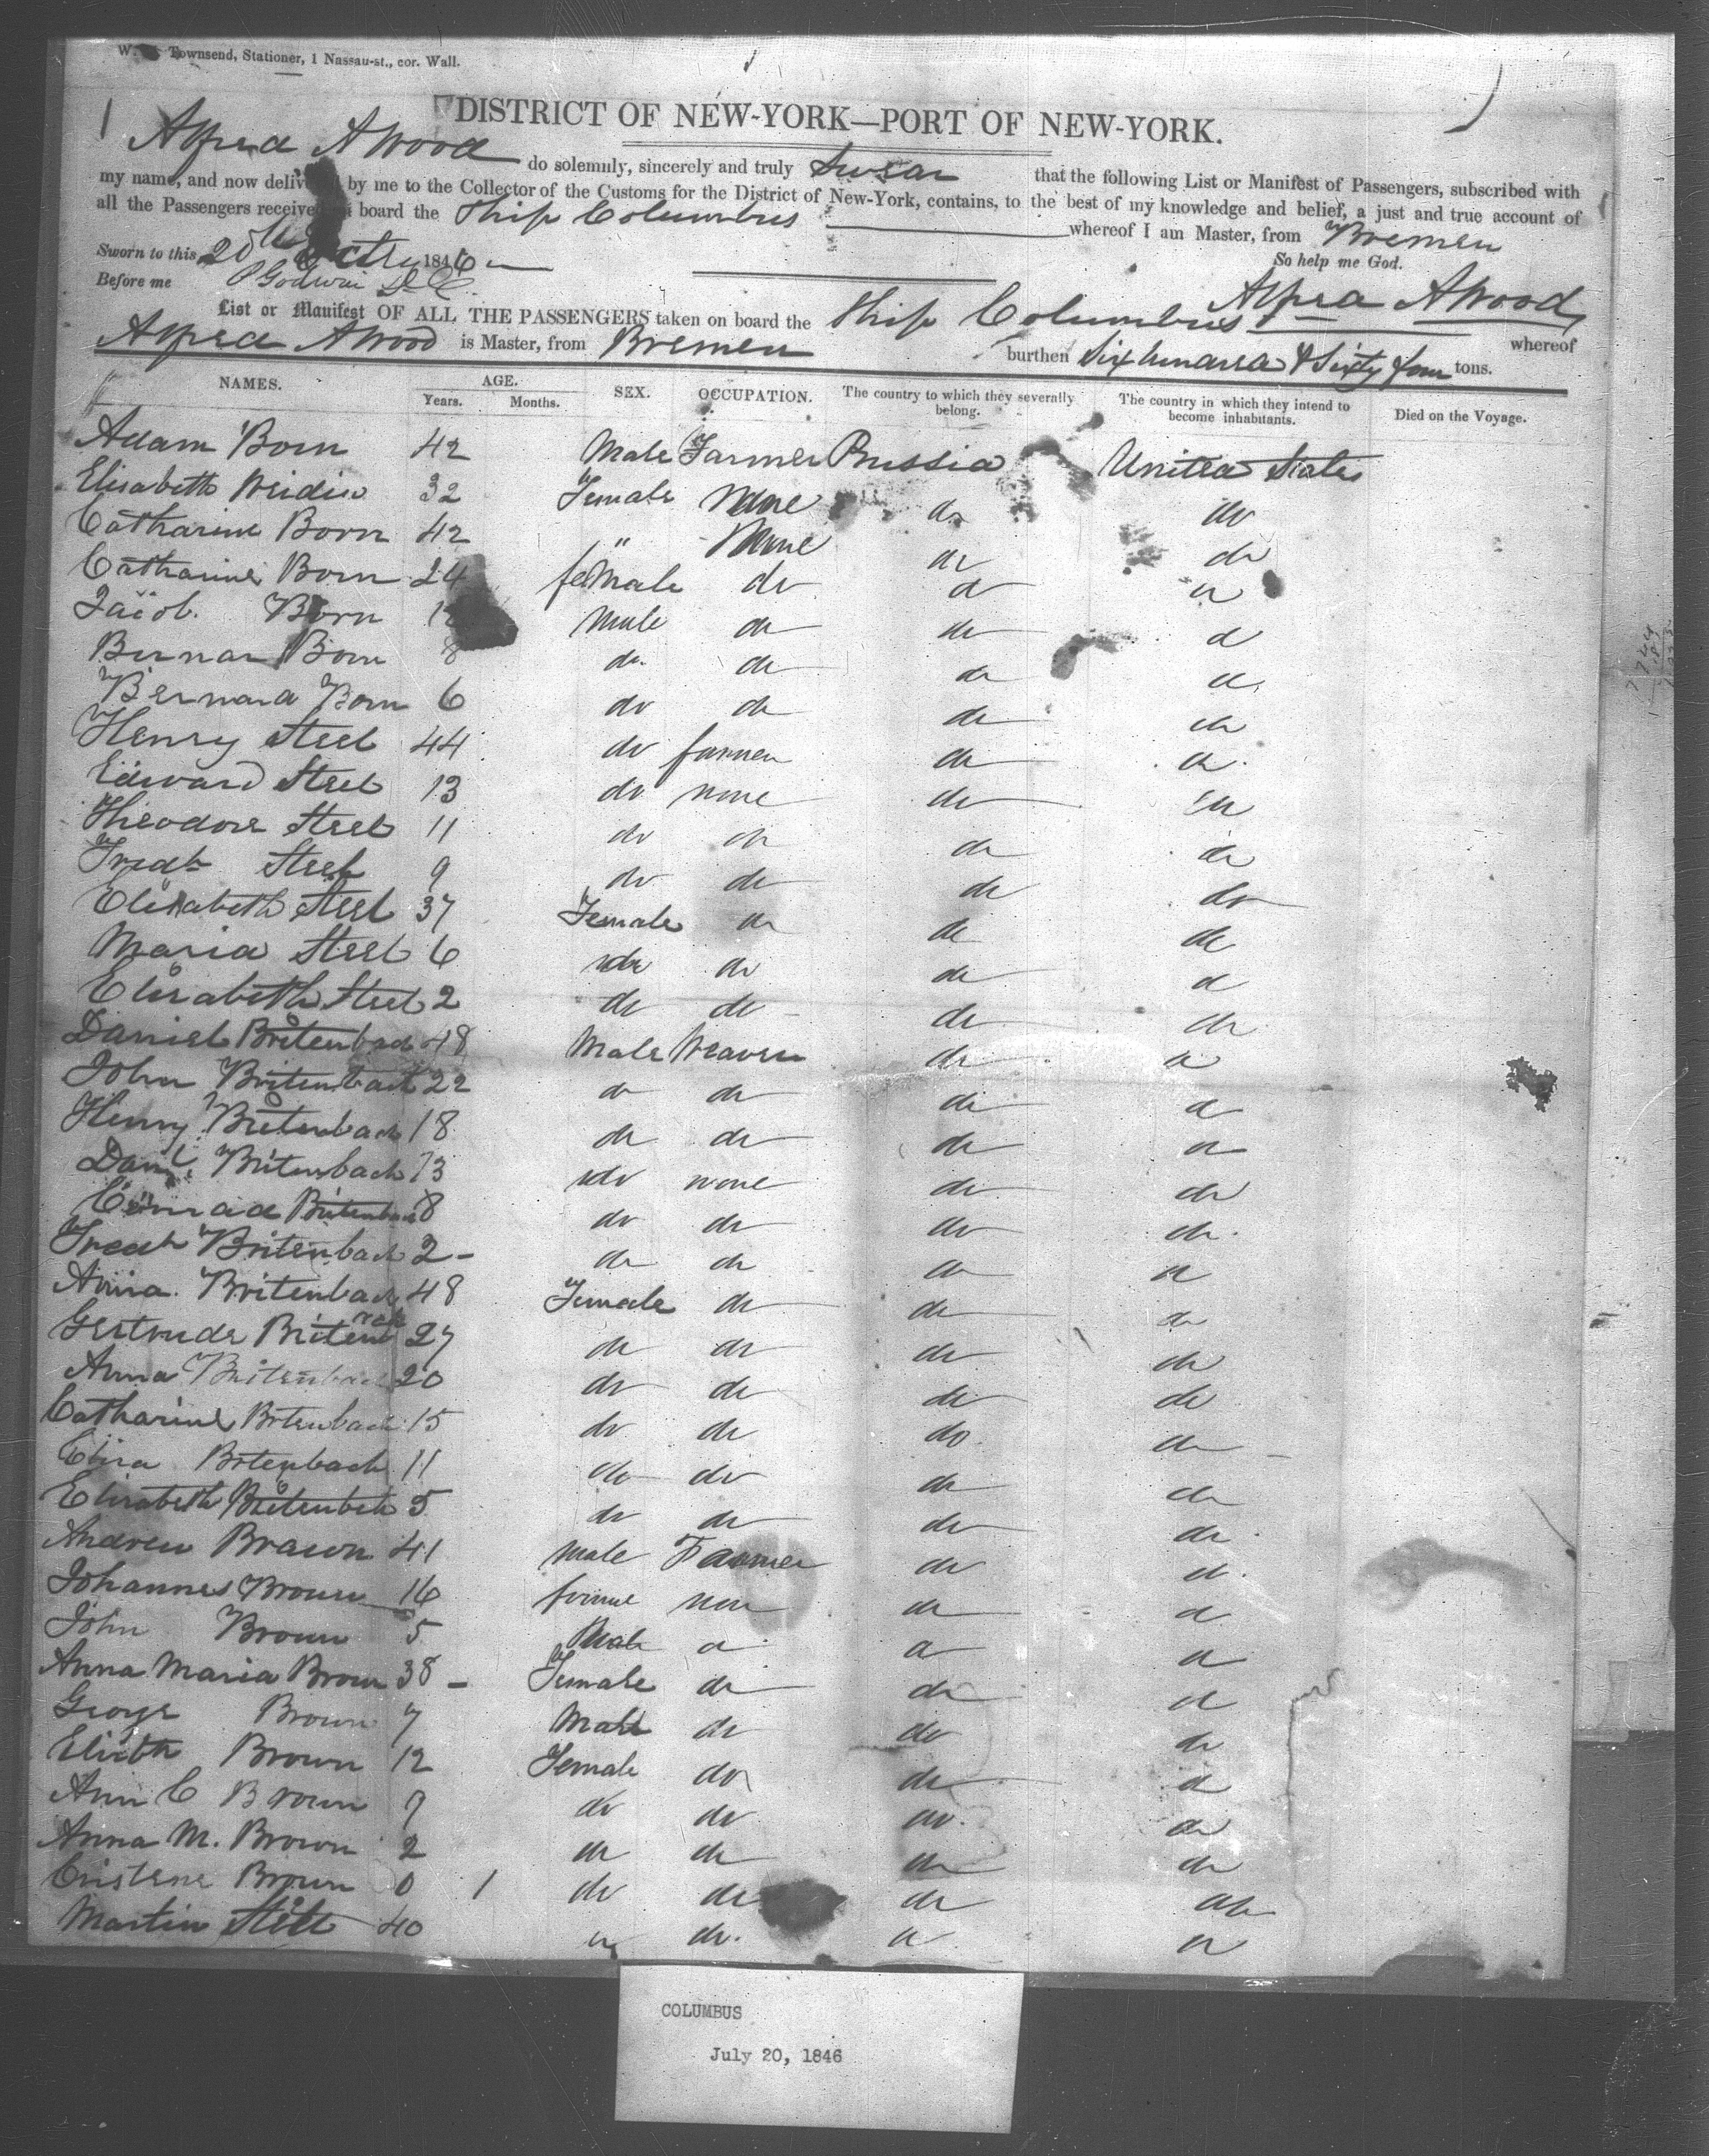 Townsend, Stationer, 1 Nassau-st., cor. Wall.
DISTRICT OF NEW-YORK—PORT OF NEW-YORK.
Alfred Atwood do solemnly, sincerely and truly Swear that the following List or Manifest of Passengers, subscribed with
my name, and now delivered by me to the Collector of the Customs for the District of New-York, contains, to the best of my knowledge and belief, a just and true account of
all the Passengers received on board the Ship Columbus whereof I am Master, from Bremen
Sworn to this 20th 1846 So help me God.
Before me P Godwin Alfred Atwood
List or Manifest OF ALL THE PASSENGERS taken on board the Ship Columbus whereof
Alfred Atwood is Master, from Bremen burthen Six hundred & Sixty four tons.
NAMES. AGE. SEX. OCCUPATION. The country to which they severally belong. The country in which they intend to become inhabitants. Died on the Voyage.
Years. Months.
Adam Born 42 Male Farmer Prussia United States
Elisabeth 32 Female None do do
Catharine Born 42 " None do do
Catharine Born 24 female do do do
Jacob Born Male do do do
Born 8 do do do do
Bernard Born 6 do do do do
Henry Steel 44 do farmer do do
Edward Steel 13 do none do do
Theodore Steel 11 do do do do
Fredk Steel 9 do do do do
Elisabeth Steel 37 Female do do do
Maria Steel 6 do do do do
Elisabeth Steel 2 do do do do
Daniel Britenbach 48 Male Weaver do do
John Britenbach 22 do do do do
Henry Britenbach 18 do do do do
Danl. Britenbach 13 do none do do
Conrad Britenbach 8 do do do do
Fredk Britenbach 2 - do do do do
Anna Britenbach 48 Female do do do
Gertrude Britenbach 27 do do do do
Anna Britenbach 20 do do do do
Catharine Britenbach 15 do do do do
Eliza Britenbach 11 do do do do
Elisabeth Britenbach 5 do do do do
Andrew Brown 41 male Farmer do do
Johannes Brown 16 non do do
John Brown 5 Male do do do
Anna Maria Brown 38 - Female do do do
George Brown 7 Male do do do
Elisbth Brown 12 Female do do do
Ann C Brown 9 do do do do
Anna M. Brown 2 do do do do
Cristene Brown 0 1 do do do do
Martin 40 do do do
COLUMBUS
July 20, 1846